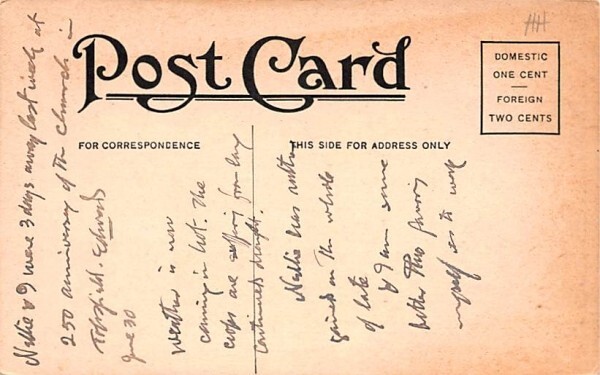 Post Card
FOR CORRESPONDENCE
THIS SIDE FOR ADDRESS ONLY
DOMESTIC
ONE CENT
FOREIGN
TWO CENTS
Nellie & I were 3 days away last week at
250 anniversary of the Church in
Topsfield. Edward
June 30
Weather is now
coming in hot. The
crops are suffering from long
continued drought.
Nellie has rather
gained on the whole
of late
& I am some
better tho favoring
myself as to work